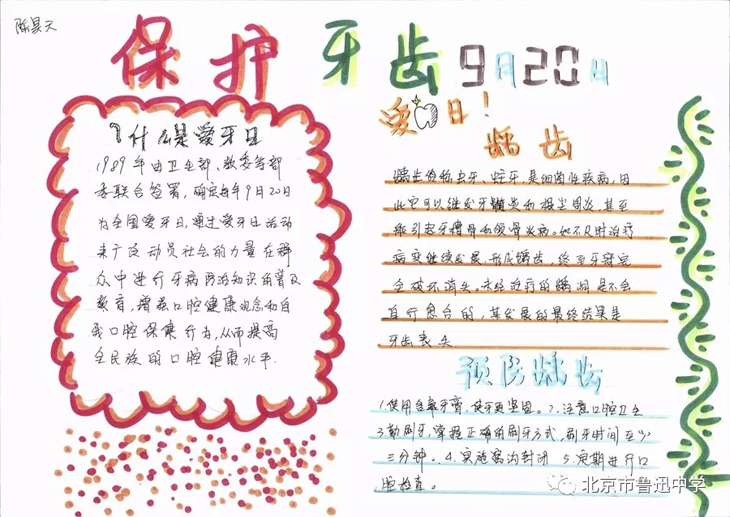 陈昊天
保护牙齿 9月20日
爱牙日!
什么是爱牙日
1989年由卫生部、教委等部
委联合签署,确定每年9月20日
为全国爱牙日,通过爱牙日活动
来广泛动员社会的力量在群
众中进行牙病防治知识的普及
教育,增强口腔健康观念和自
我口腔保健行为,从而提高
全民族的口腔健康水平.
龋齿
龋齿俗称虫牙、蛀牙,是细菌性疾病,因
此它可以继发牙髓炎和根尖周炎,甚至
能引起牙槽骨和颌骨炎症。如不及时治疗
病变继续发展,形成龋洞,终至牙冠完
全破坏消失。未经治疗的龋洞是不会
自行愈合的,其发展的最终结果是
牙齿丧失
预防龋齿
1.使用含氟牙膏,使牙更坚固。2.注意口腔卫生
3.勤刷牙,掌握正确的刷牙方式,刷牙时间至少
三分钟。4.实施窝沟封闭 5.定期进行口
腔检查。
北京市鲁迅中学